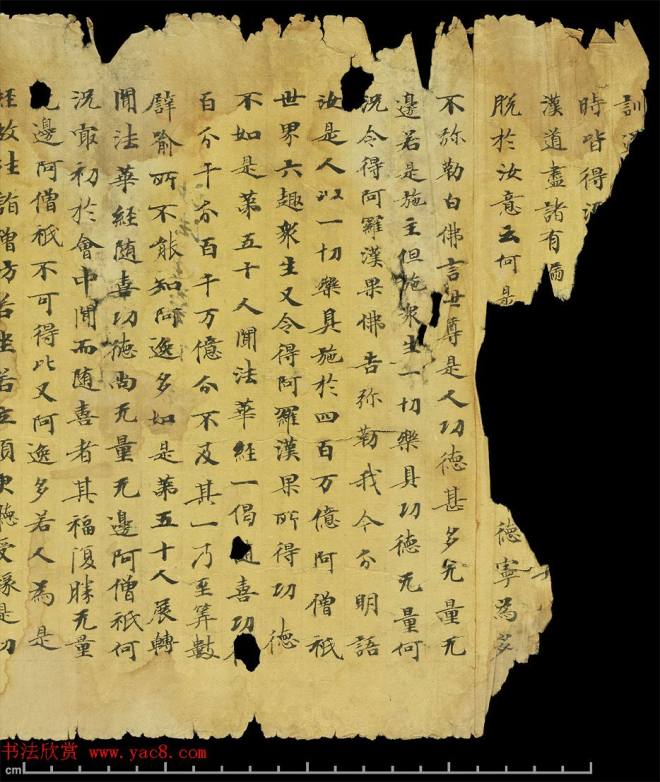 訓
時皆得
漢道盡諸有漏
脫於汝意云何是德寧為多
不弥勒白佛言世尊是人功德甚多无量无
邊若是施主但施衆生一切樂具功德无量何
況令得阿羅漢果佛告弥勒我今分明語
汝是人以一切樂具施於四百万億阿僧祇
世界六趣衆生又令得阿羅漢果所得功德
不如是第五十人聞法華經一偈随喜功
百分千分百千万億分不及其一乃至筭數
譬喻所不能知阿逸多如是第五十人展轉
聞法華經随喜功德尚无量无邊阿僧祇何
況㝡初於會中聞而随喜者其福復勝无量
邊阿僧祇不可得比又阿逸多若人為是
經故往詣僧坊若坐若立須臾聽受緣是功
书法欣赏 www.yac8.com
cm